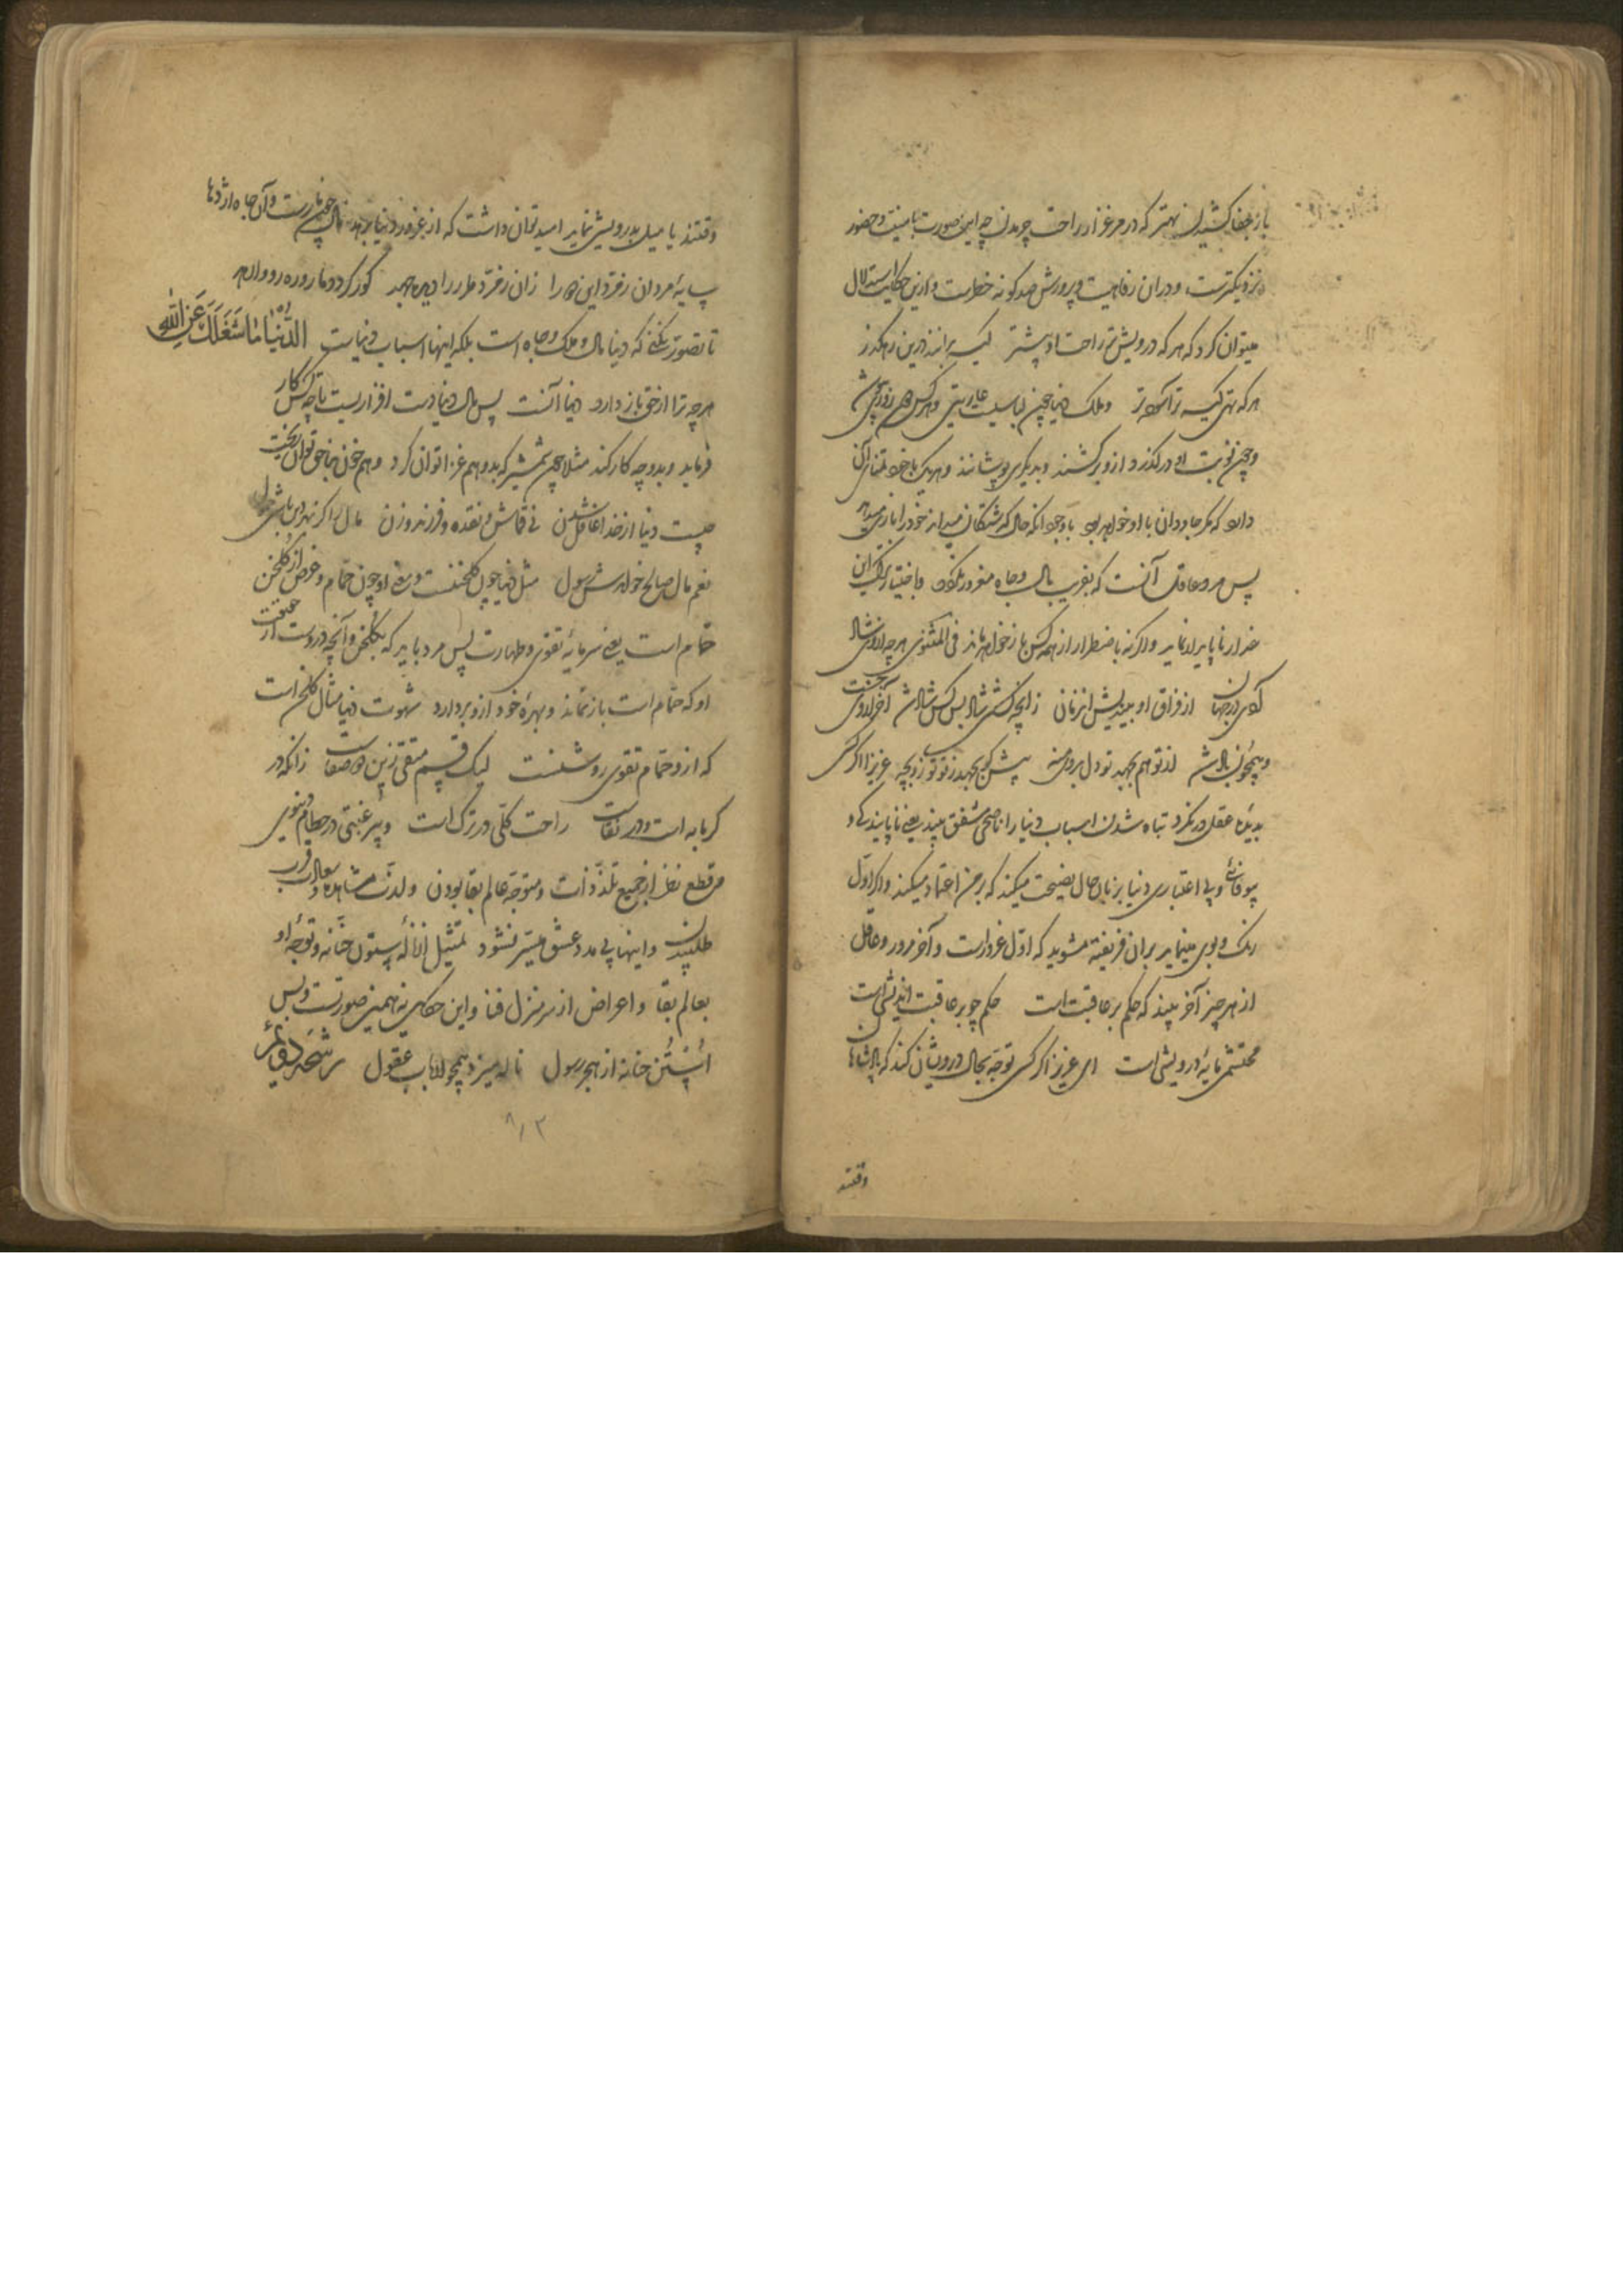 بار جفا کشیدن بهتر که در مرغزار راحت چریدن چه این صورت بامنیت و حضور
نزدیکترست و در آن رفاهیت و پرورش صد کونه خطرست و ازین حکایت استدلال
میتوان کرد که هر که درویش‌تر راحت او بیشتر کیسه برانند درین رهکذر
هر که تهی کیسه تر آسوده تر و ملک دنیا چون لباسیست عاریتی و هر کس روزی
و چون نوبت او درگذرد ازو برکشند و بدیگری پوشانند و هر یک با خود
داند که مگر جاودان با او خواهد بود با وجود آنکه حال گذشتگان میداند خود را بازی میدهد
پس مرد عاقل آنست که بفریب مال و جاه مغرور نکردد و باختیار ترک این
غدار ناپایدار نماید و اگر نه باضطرار از همه کس باز خواهد ماند فی المثنوی هرچه از وی شاد
گردی در جهان از فراق او بیندیش آن زمان زانچه کشتی شاد بس کس شاد شد آخر از وی جست
و همچون باد شد از تو هم بجهد تو دل بر وی منه پیش کو بجهد ز تو تو زو بجه عزیزا اگر کسی
بدیده عقل درنگرد تباه شدن اسباب دنیا را ناصحی مشفق بیند یعنی ناپایندگی و
بیوفائی و بی اعتباری دنیا بزبان حال نصیحت میکند که بر من اعتماد میکنید و اگر اول
رنگ و بوی مینماید بر آن فریفته مشوید که اول غرورست و آخر مرور و عاقل
از هر چیز آخر بیند که حکم بر عاقبت است حکم چو بر عاقبت اندیشی است
محتشمی مایه درویشی است ای عزیز اگر کسی توجه بحال درویشان کند که پادشاه
وقتند
وقتند یا میل بدرویشی نماید امید توان داشت که از غرور دنیا برهد مال چون مارست و آن جاه اژدها
سایه مردان زمرد این دو را زان زمرد مار را دیده جهد کور گردد مار و ره رو وارهد
تا تصور نکنی که دنیا مال و ملک و جاه است بلکه اینها اسباب دنیاست الدُّنْیَا مَا شَغَلَکَ عَنِ اللهِ
هرچه ترا از حق باز دارد دنیا آنست پس مال دنیا دست افزاریست تا چه کس کار
فرماید و بدو چه کار کند مثلا چون شمشیر که بدو هم غزا توان کرد و هم خون بناحق توان ریخت
چیست دنیا از خدا غافل شدن نی قماش و نقده و فرزند و زن مال را گر بهر دین باشی حمول
نعم مال صالح خواندش رسول مثل دنیا چون گلخنست و معنی او چون حمام و غرض از گلخن
حمام است یعنی سرمایه تقوی و طهارت پس مرد باید که بگلخن و آنچه دروست از حقیقت
او که حمام است باز نماند و بهره خود ازو بردارد شهوت دنیا مثال گلخن است
که ازو حمام تقوی روشنست لیک قسم متقی زین تون صفاست زانکه در
گرمابه است و در نقاست راحت کلی در ترک است و بی رغبتی در حطام دنیوی
و قطع نظر از جمیع تلذذات و متوجه عالم بقا بودن و لذت مشاهده و وصال قرب
طلبیدن و اینها بی مدد عشق میسر نشود تمثیل از ناله ستون حنانه و توجه او
بعالم بقا و اعراض از سرمنزل فنا و این حکایت نه همین صورتست و بس
اُسْتُن حنانه از هجر رسول ناله میزد همچو ارباب عقول
۸۱۳